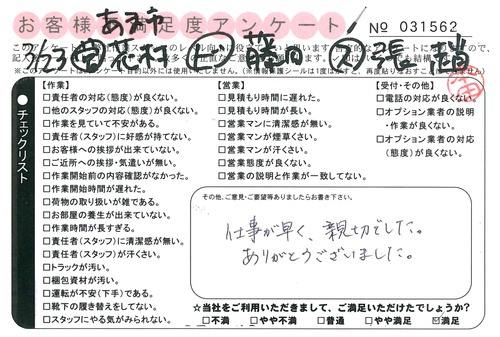 お客様満足度アンケート
№ 031562
【作業】
□責任者の対応(態度)が良くない。
□他のスタッフの対応(態度)が良くない。
□作業を見ていて不安がある。
□責任者(スタッフ)に好感が持てない。
□お客様への挨拶が出来ていない。
□ご近所への挨拶・気遣いが無い。
□作業開始前の内容確認がなかった。
□作業開始時間が遅れた。
□荷物の取り扱いが雑である。
□お部屋の養生が出来ていない。
□作業時間が長すぎる。
□責任者(スタッフ)に清潔感が無い。
□責任者(スタッフ)が汗くさい。
□トラックが汚い。
□梱包資材が汚い。
□運転が不安(下手)である。
□靴下の履き替えをしていない。
□スタッフにやる気がみられない。
【営業】
□見積もり時間に遅れた。
□見積もり時間が長い。
□営業マンに清潔感が無い。
□営業マンが煙草くさい。
□営業マンが汗くさい。
□営業態度が良くない。
□営業の説明と作業が一致してない。
【受付・その他】
□電話の対応が良くない。
□オプション業者の説明
・作業が良くない。
□オプション業者の対応
(態度)が良くない。
チェックリスト
その他、ご意見・ご要望等ありましたらお書き下さい。
仕事が早く、親切でした。
ありがとうございました。
☆当社をご利用いただきまして、ご満足いただけたでしょうか?
□不満 □やや不満 □普通 □やや満足 ☑満足